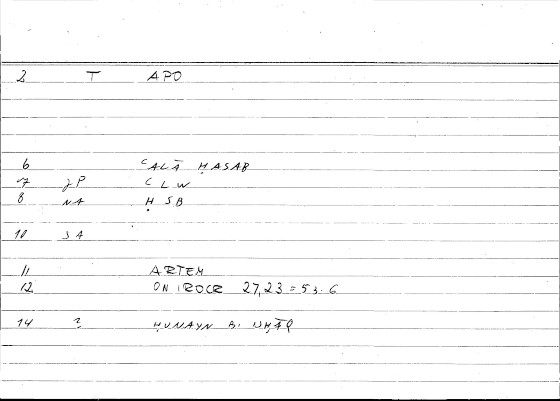 2 T APO
6 ʿALĀ ḤASAB
7 JP ʿLW
8 NA ḤSB
10 SA
11 ARTEM
12 ONIROCR 27,23 = 53.6
14 ? ḤUNAYN B. ISḤĀQ